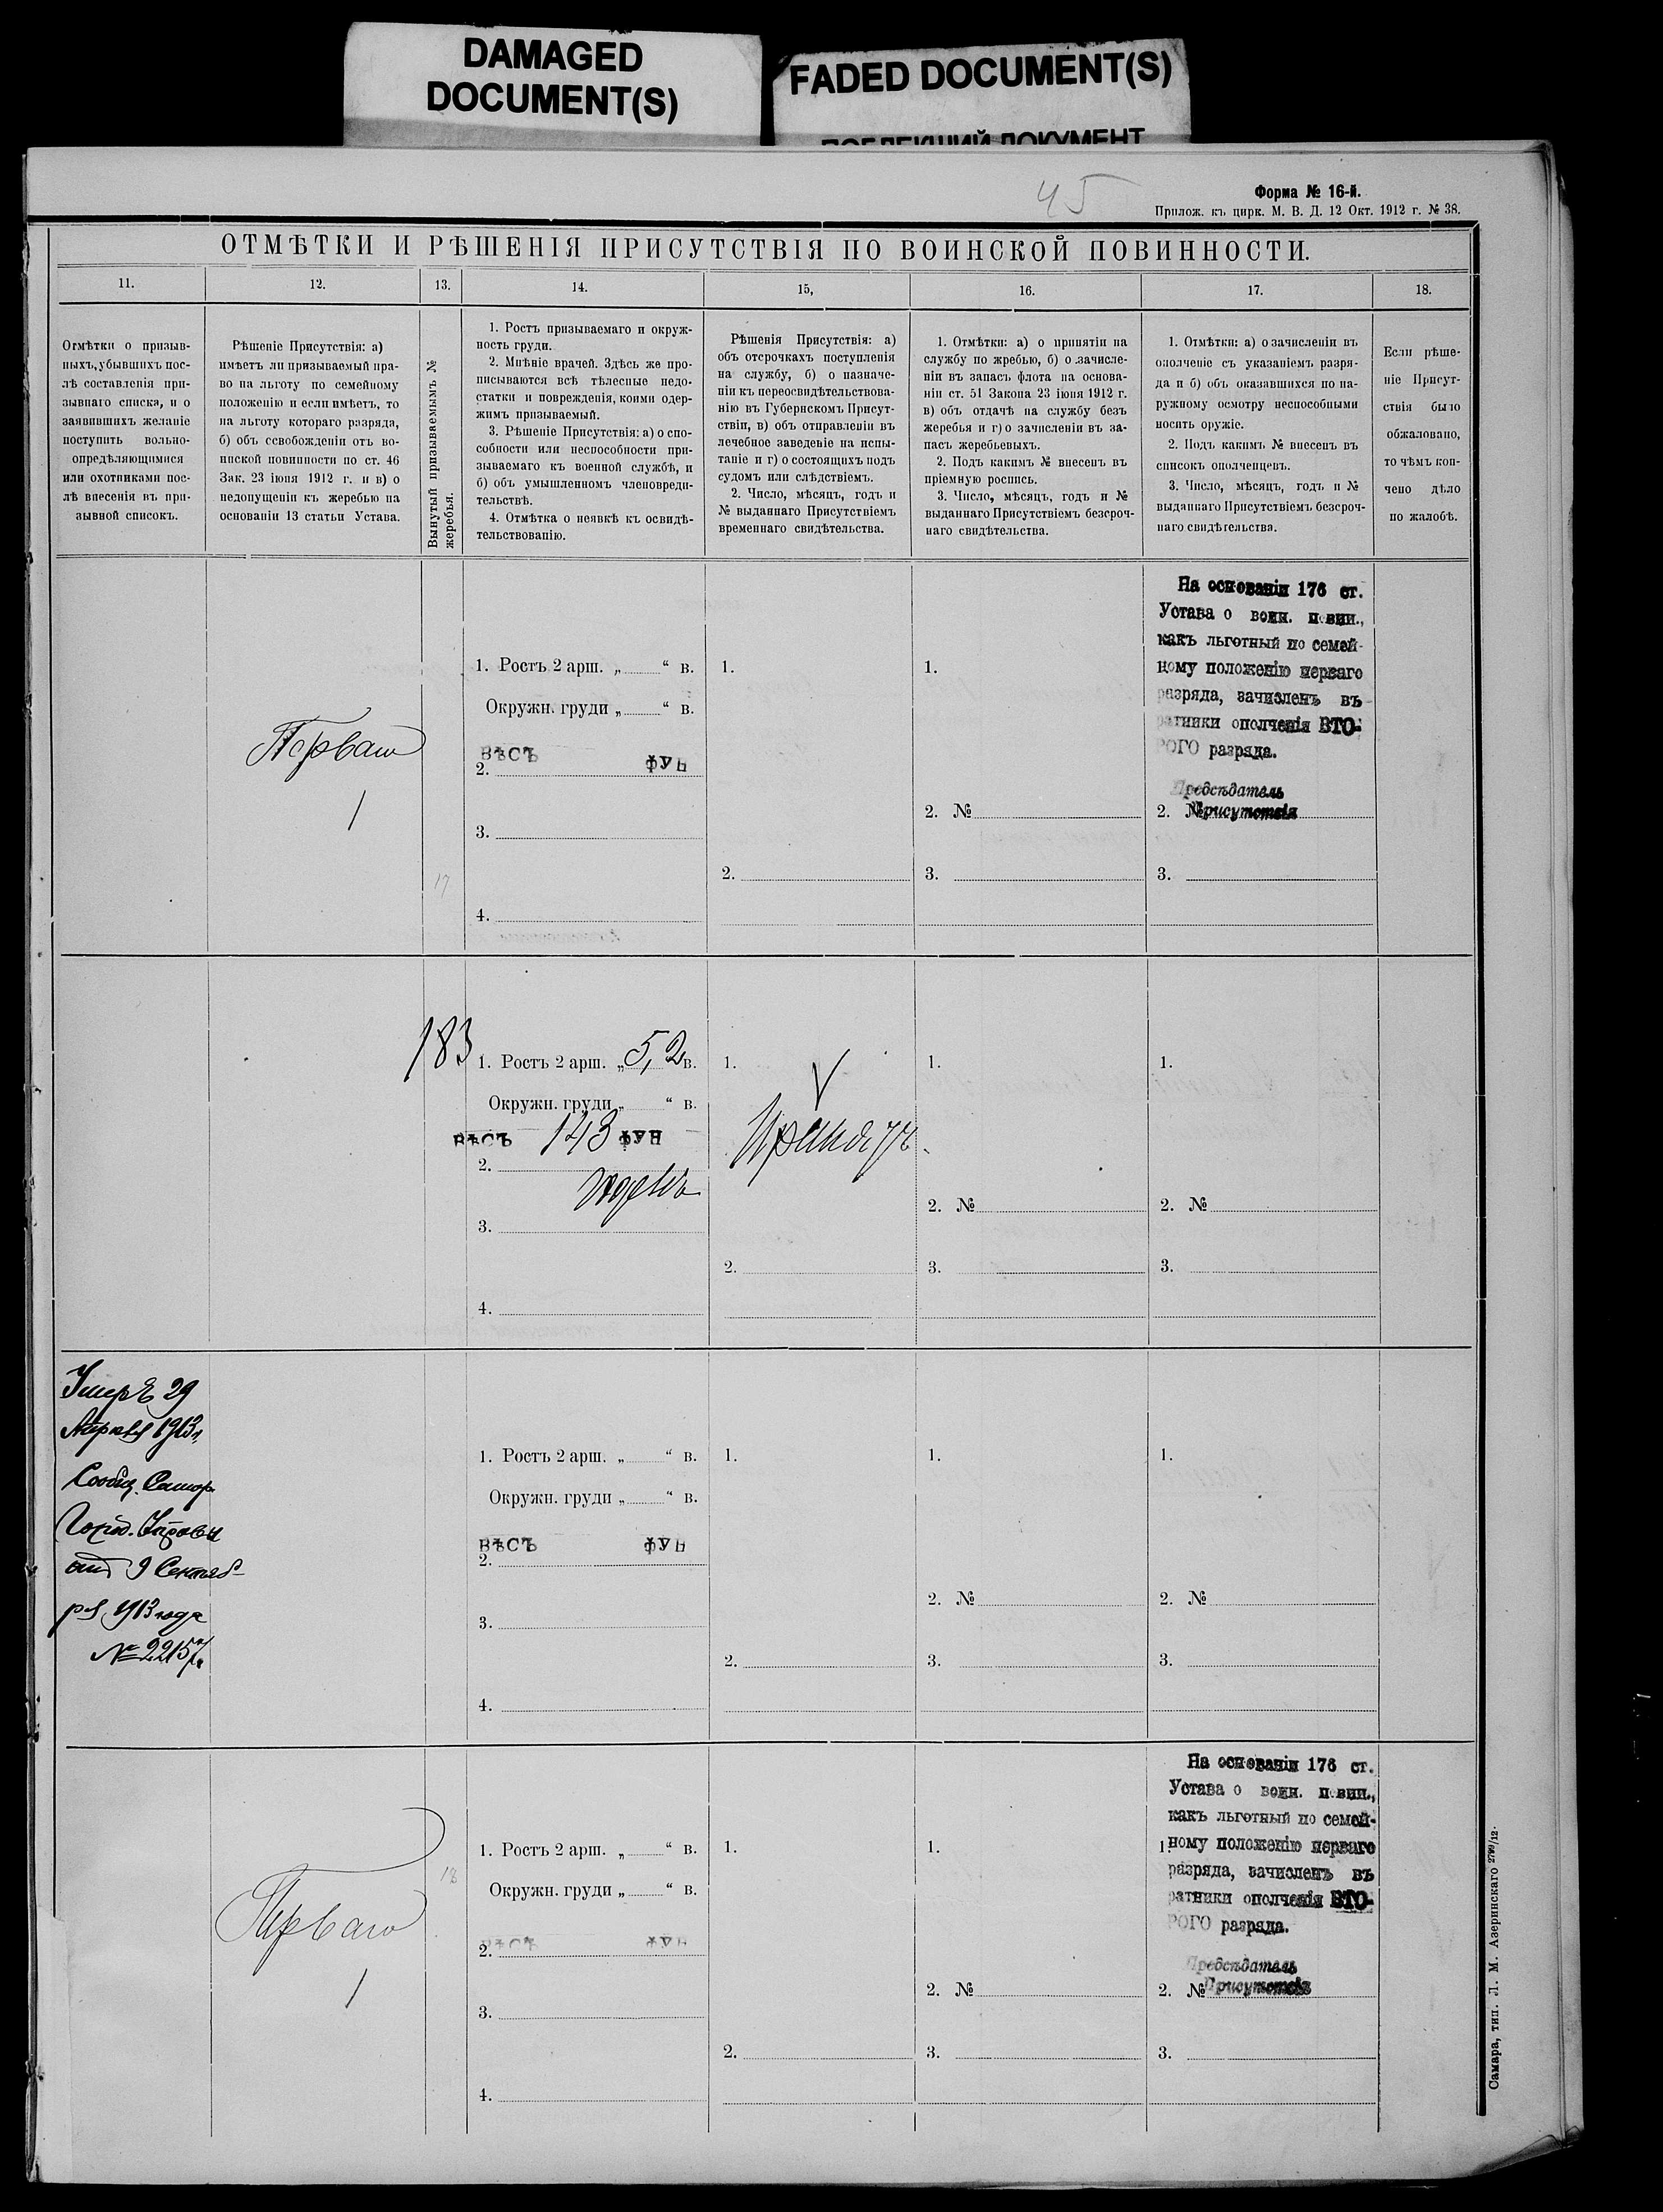 DAMAGED
DOCUMENT(S)
FADED DOCUMENT(S)
45
Форма № 16-й.
Прилож. къ цирк. М. В. Д. 12 Окт. 1912 г. № 38.
ОТМѢТКИ И РѢШЕНІЯ ПРИСУТСТВІЯ ПО ВОИНСКОЙ ПОВИННОСТИ.
11.
12.
13.
14.
15,
16.
17.
18.
Отмѣтки о призыв-
ныхъ, убывшихъ пос-
лѣ составленія при-
зывнаго списка, и о
заявившихъ желаніе
поступить вольно-
опредѣляющимися
или охотниками пос-
лѣ внесенія въ при-
зывной списокъ.
Рѣшеніе Присутствія: а)
имѣетъ ли призываемый пра-
во на льготу по семейному
положенію и если имѣетъ, то
на льготу котораго разряда,
б) объ освобожденіи отъ во-
инской повинности по ст. 46
Зак. 23 іюня 1912 г. и в) о
недопущеніи къ жеребью на
основаніи 13 статьи Устава.
Вынутый призываемымъ №
жеребья.
1. Ростъ призываемаго и окруж-
ность груди.
2. Мнѣніе врачей. Здѣсь же про-
писываются всѣ тѣлесные недо-
статки и поврежденія, коими одер-
жимъ призываемый.
3. Рѣшеніе Присутствія: а) о спо-
собности или неспособности при-
зываемаго къ военной службѣ, и
б) объ умышленномъ членовреди-
тельствѣ.
4. Отмѣтка о неявкѣ къ освидѣ-
тельствованію.
Рѣшенія Присутствія: а)
объ отсрочкахъ поступленія
на службу, б) о назначе-
ніи къ переосвидѣтельствова-
нію въ Губернскомъ Присут-
ствіи, в) объ отправленіи въ
лечебное заведеніе на испы-
таніе и г) о состоящихъ подъ
судомъ или слѣдствіемъ.
2. Число, мѣсяцъ, годъ и
№ выданнаго Присутствіемъ
временнаго свидѣтельства.
1. Отмѣтки: а) о принятіи на
службу по жребью, б) о зачисле-
ніи въ запасъ флота на основа-
ніи ст. 51 Закона 23 іюня 1912 г.
в) объ отдачѣ на службу безъ
жеребья и г) о зачисленіи въ за-
пасъ жеребьевыхъ.
2. Подъ какимъ № внесенъ въ
пріемную роспись.
3. Число, мѣсяцъ, годъ и №
выданнаго Присутствіемъ безсроч-
наго свидѣтельства.
1. Отмѣтки: а) о зачисленіи въ
ополченіе съ указаніемъ разря-
да и б) объ оказавшихся по на-
ружному осмотру неспособными
носить оружіе.
2. Подъ какимъ № внесенъ въ
списокъ ополченцевъ.
3. Число, мѣсяцъ, годъ и №
выданнаго Присутствіемъ безсроч-
наго свидѣтельства.
Если рѣше-
ніе Присут-
ствія было
обжаловано,
то чѣмъ кон-
чено дѣло
по жалобѣ.
Перваго
1
17
1. Ростъ 2 арш. „ “ в.
Окружн. груди „ “ в.
вѣсъ фун
2.
3.
4.
1.
2.
1.
2. №
3.
На основаніи 176 ст.
Устава о воин. повин.,
какъ льготный по семей-
ному положенію перваго
разряда, зачисленъ въ
ратники ополченія ВТО-
РОГО разряда.
Предсѣдатель
2. № Присутствія
3.
183
1. Ростъ 2 арш. „5,2 в.
Окружн. груди „ “ в.
вѣсъ 143 фун
2.
годенъ
3.
4.
1.
Принятъ
2.
1.
2. №
3.
1.
2. №
3.
Умеръ 29
Апрѣля 1913 г.
Сообщ. Самар.
Город. Управы
отъ 9 Сентяб-
ря 1913 года
№ 22157.
1. Ростъ 2 арш. „ “ в.
Окружн. груди „ “ в.
вѣсъ фун
2.
3.
4.
1.
2.
1.
2. №
3.
1.
2. №
3.
Перваго
1
18
1. Ростъ 2 арш. „ “ в.
Окружн. груди „ “ в.
вѣсъ фун
2.
3.
4.
1.
2.
1.
2. №
3.
На основаніи 176 ст.
Устава о воин. повин.,
какъ льготный по семей-
1. ному положенію перваго
разряда, зачисленъ въ
ратники ополченія ВТО-
РОГО разряда.
Предсѣдатель
2. № Присутствія
3.
Самара, тип. Л. М. Азеринскаго 2799/12.